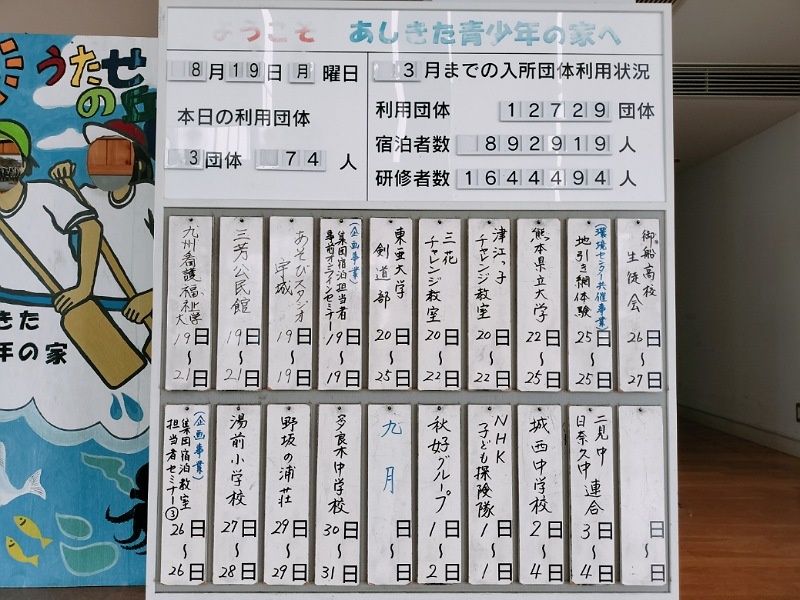 ようこそ あしきた青少年の家へ
8月19日 月 曜日
本日の利用団体
3団体 74人
3月までの入所団体利用状況
利用団体 12729団体
宿泊者数 892919人
研修者数 1644494人
うたせ
の
きた
年の家
九州看護福祉大学 19日〜21日
三芳公民館 19日〜21日
あそびスタジオ宇城 19日〜19日
(企画事業) 集団宿泊担当者事前オンラインセミナー 19日〜19日
東亜大学剣道部 20日〜25日
三花チャレンジ教室 20日〜22日
津江っ子チャレンジ教室 20日〜22日
熊本県立大学 22日〜25日
環境センター共催事業 地引き網体験 25日〜25日
御船高校生徒会 26日〜27日
(企画事業) 集団宿泊教室担当者セミナー③ 26日〜26日
湯前小学校 27日〜28日
野坂の浦荘 29日〜29日
多良木中学校 30日〜31日
九月 日〜日
秋好グループ 1日〜2日
NHK子ども探険隊 1日〜1日
城西中学校 2日〜4日
二見中日奈久中連合 3日〜4日
日〜日